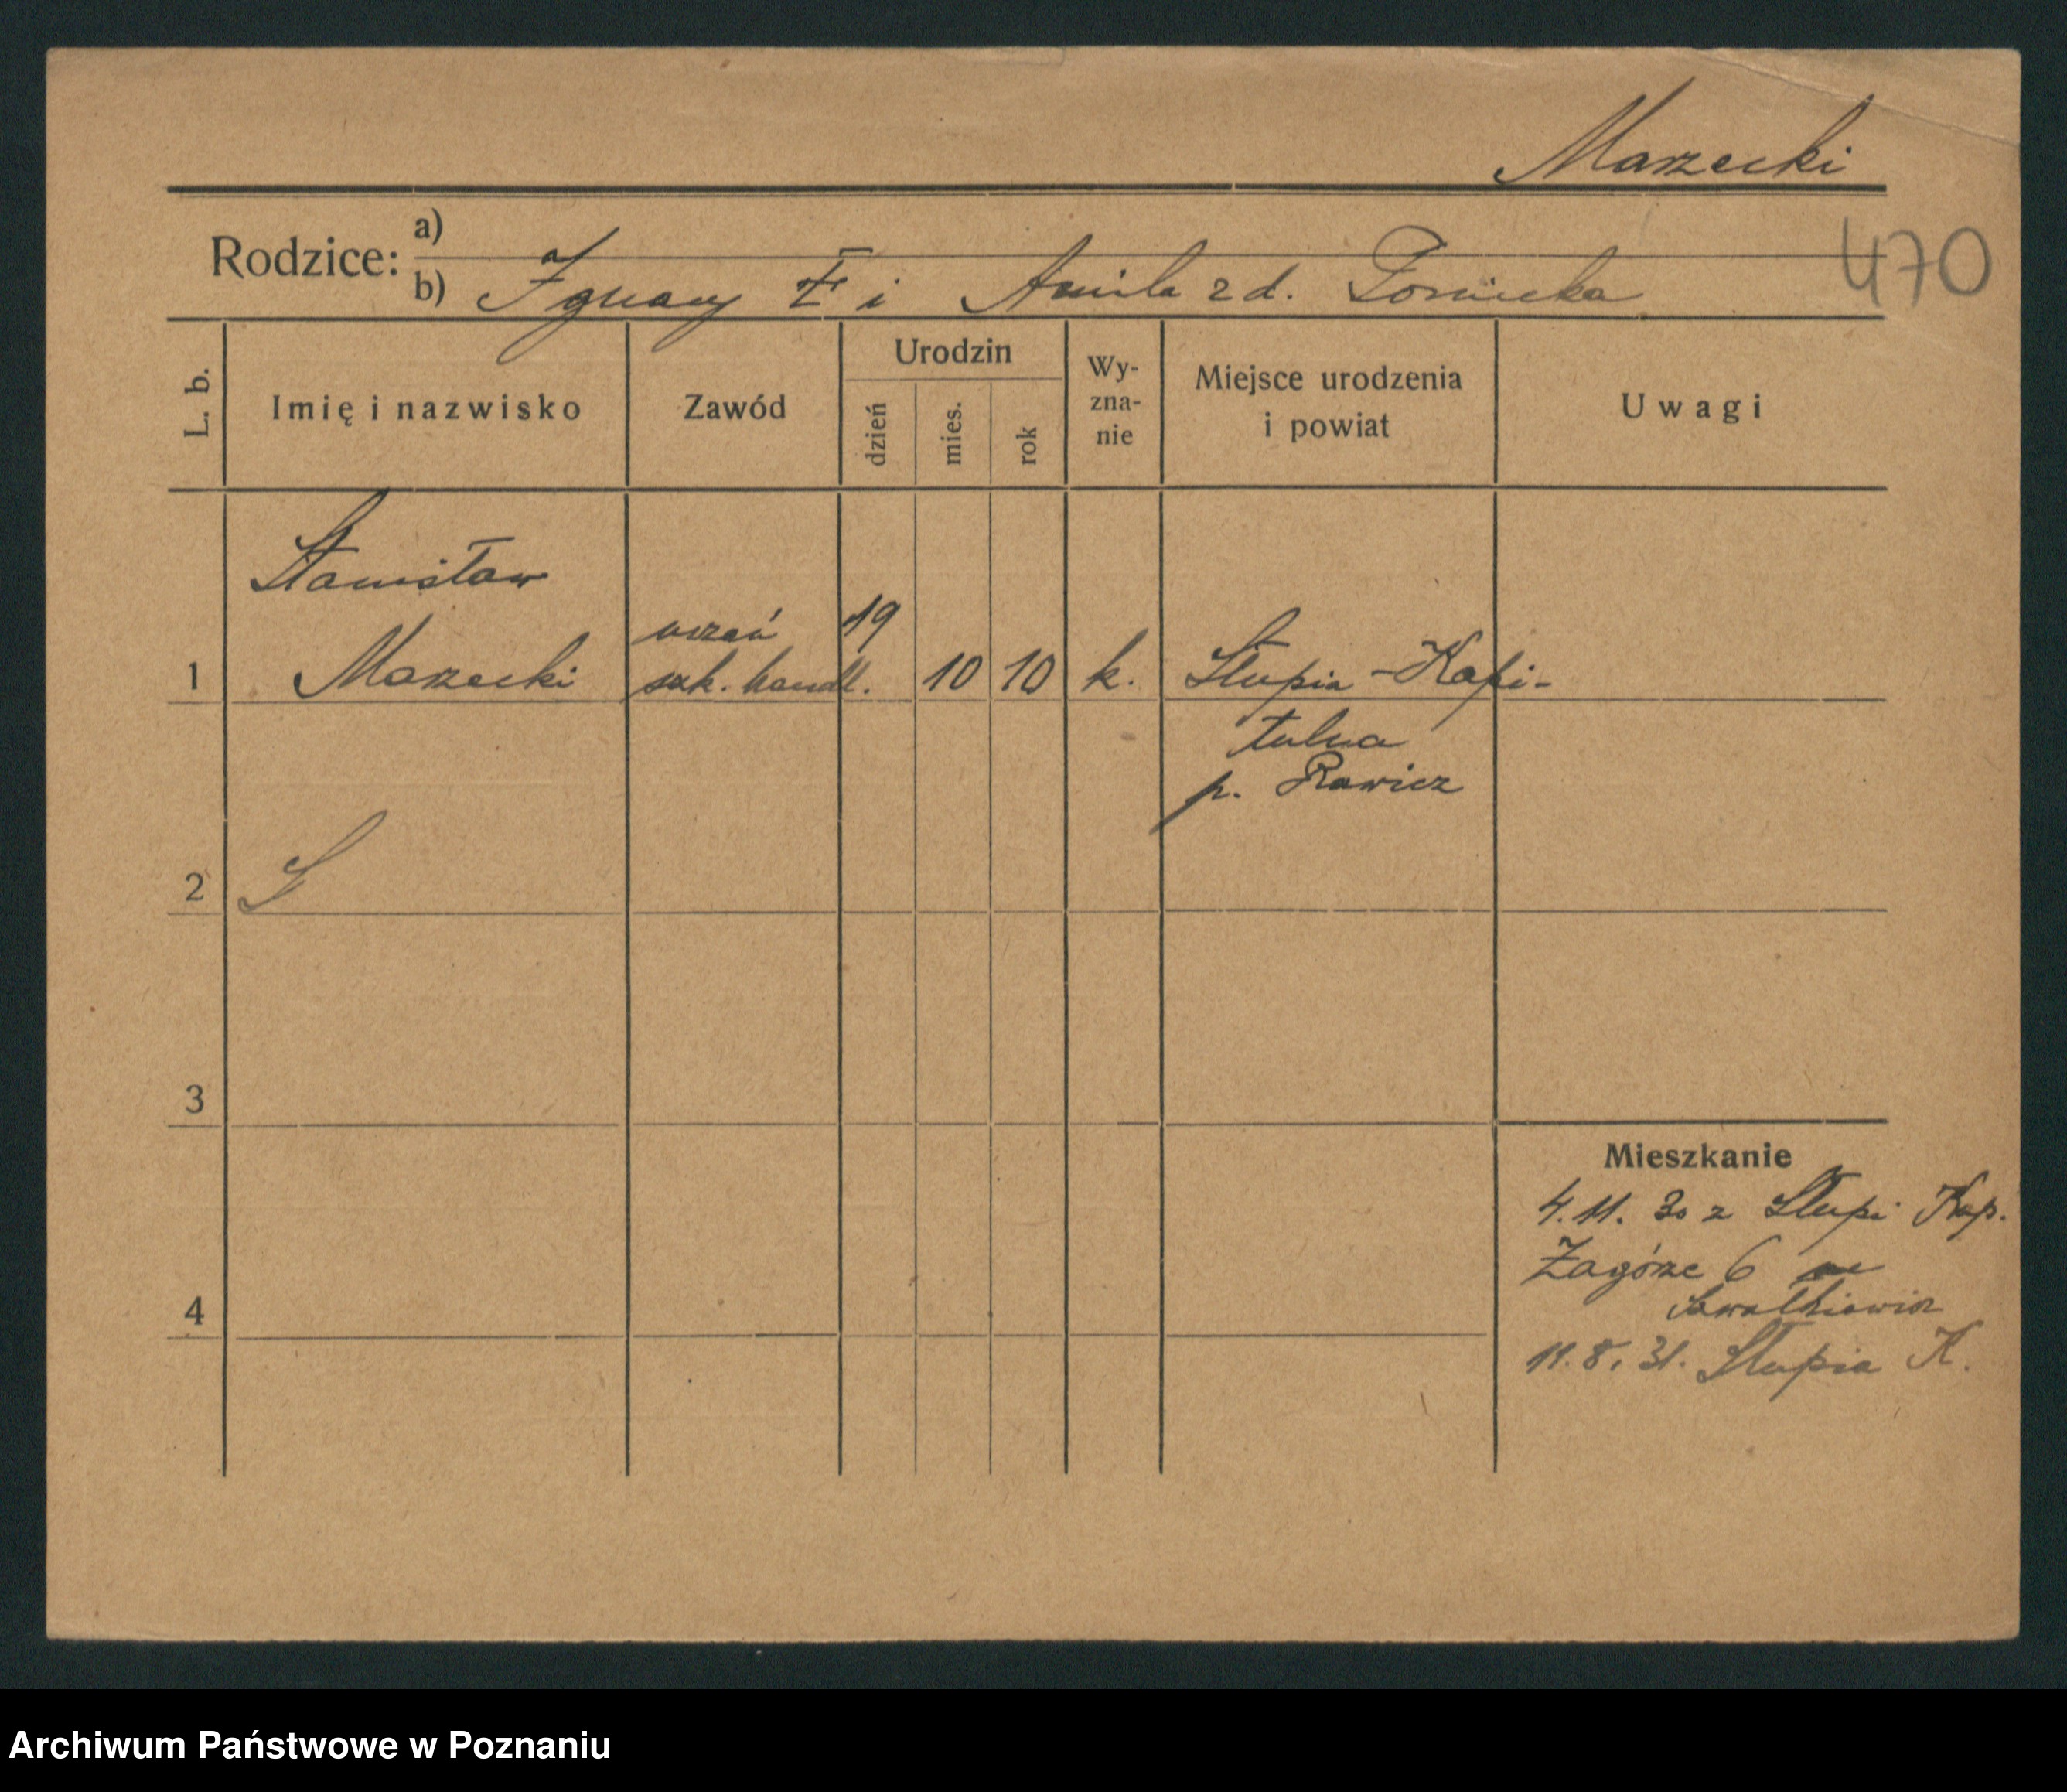 Marzecki
470
Rodzice: a)
b) Ignacy i z d.
L. b.
Imię i nazwisko
Zawód
Urodzin
dzień
mies.
rok
Wy-
zna-
nie
Miejsce urodzenia
i powiat
Uwagi
Stanisław
1 Marzecki
uczeń
szk. handl.
19 10 10 k. Słupia-Kapi-
tulna
p. Rawicz
2
3
Mieszkanie
4. 11. 30 z Słupi Kap.
Zagórze 6
4
11. 8. 31. Słupia K.
Archiwum Państwowe w Poznaniu